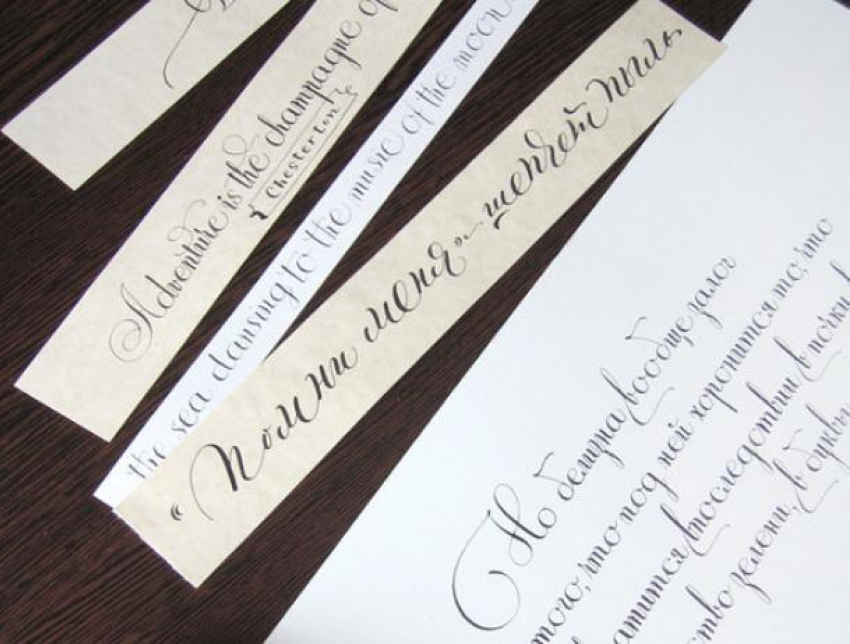 Adventure is the champagne of
Chesterton
the sea dansing to the music of the moon
"Помни меня" – шепчет пыль
Но белизна вообще залог
того, что под ней хоронится то, что
атится впоследствии в почки в
ство зелени, в буквы